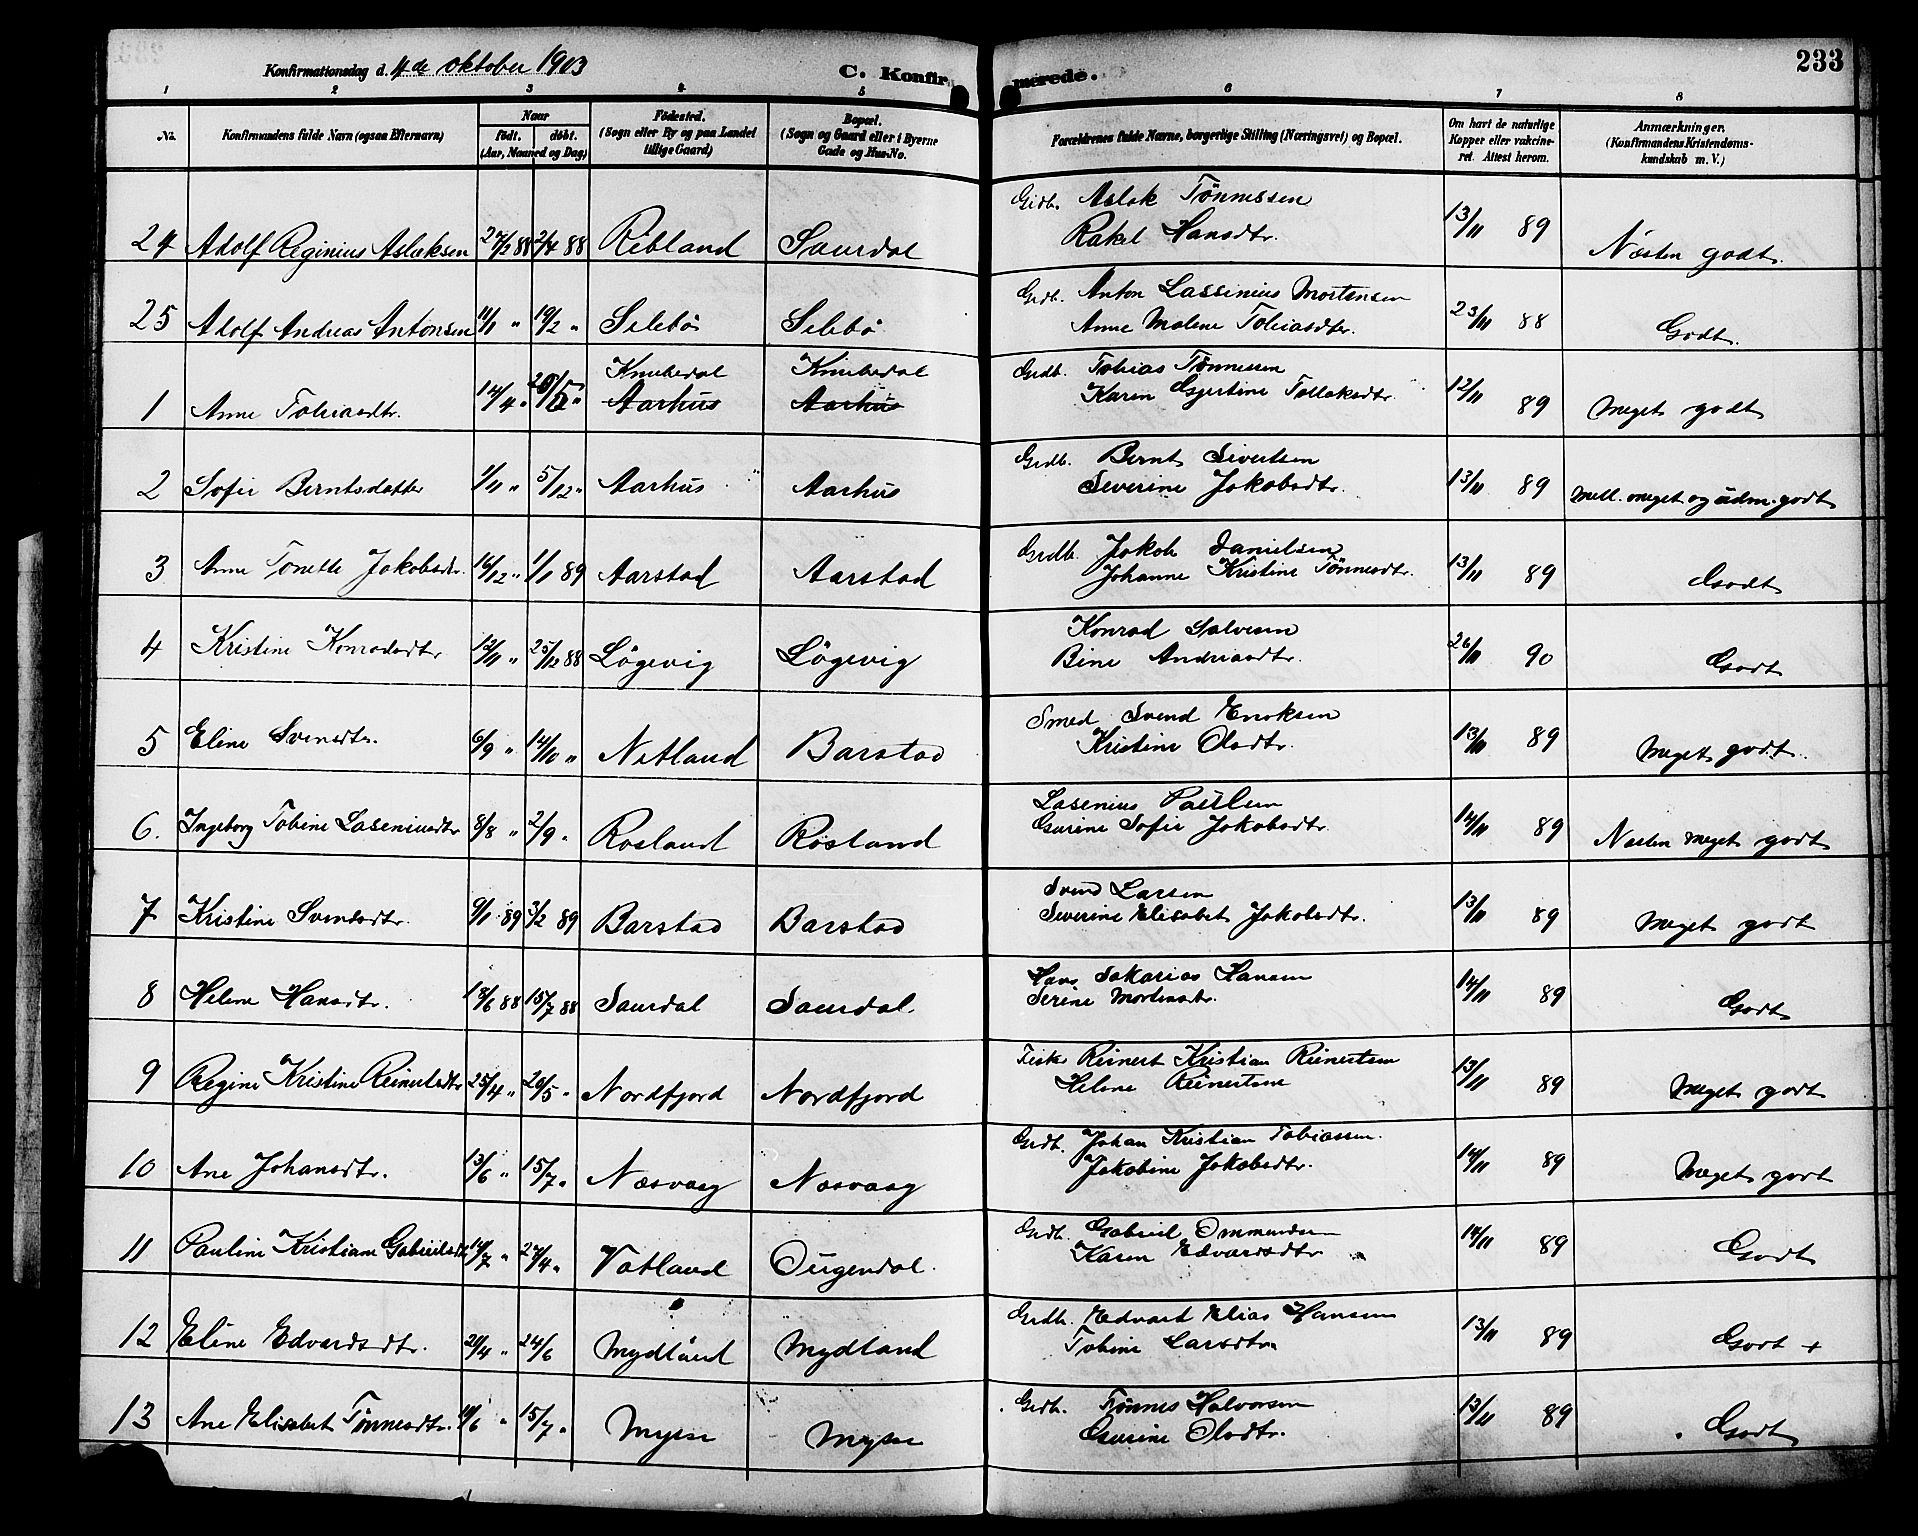 Konfirmationsdag d. 4de oktober 1903 C. Konfirmerede. 233
1 2 3 4 5 6 7 8
No. Konfirmandens fulde Navn (ogsaa Efternavn) Naar födt. döbt. (Aar, Maaned og Dag) Födested. (Sogn eller By og paa Landet tillige Gaard) Bopæl. (Sogn og Gaard eller i Byerne Gade og Hus-No. Forældrenes fulde Navne, borgerlige Stilling (Næringsvei) og Bopæl. Om havt de naturlige Kopper eller vakcineret. Attest herom. Anmærkninger. (Konfirmandens Kristendomskundskab m. V.)
24 Adolf Reginius Aslaksen 27/2 88 2/4 88 Rebland Saurdal Grdb. Aslak Tönnessen
Rakel Hansdtr. 13/11 89 Næsten godt.
25 Adolf Andreas Antonsen 11/1 " 19/2 " Selebö Selebö Grdb. Anton Lassinius Mortensen
Anne Malene Tobiasdtr. 23/11 88 Godt.
1 Anne Tobiasdtr. 14/4 " 20/5 " Knubedal Aarhus Knubedal Aarhus Grdb. Tobias Tönnesen
Karen Gjertine Tollaksdtr. 12/11 89 Meget godt
2 Sofie Berntsdatter 1/11 " 5/12 " Aarhus Aarhus Grdb. Bernt Sivertsen
Severine Jakobsdtr. 13/11 89 Mell. meget og udm. godt
3 Anne Tonette Jakobsdtr. 16/12 " 1/1 89 Aarstad Aarstad Grdb. Jakob Danielsen
Johanne Kristine Tönnesdtr. 13/11 89 Godt
4 Kristine Konradsdtr 13/11 " 25/12 88 Lögevig Lögevig Konrad Salvesen
Bine Andreasdtr. 26/11 90 Godt
5 Eline Svensdtr. 6/9 " 14/10 " Netland Barstad Smed Svend Enoksen
Kristine Olsdtr. 13/11 89 Meget godt.
6. Ingeborg Tobine Laseniusdtr 8/8 " 2/9 " Rosland Rosland Lasenius Paulsen
Gurine Sofie Jakobsdtr. 14/11 89 Næsten meget godt
7 Kristine Svendsdtr. 9/1 89 3/2 89 Barstad Barstad Svend Larsen
Severine Elisabet Jakobsdtr. 13/11 89 Meget godt
8 Helene Hansdtr. 18/6 88 15/7 88 Saurdal Saurdal. Hans Sakarias Hansen
Serine Mortensdtr. 14/11 89 Godt
9 Regine Kristine Reinertsdtr 25/4 " 20/5 " Nordfjord Nordfjord Fisk. Reinert Kristian Reinertsen
Helene Reinertsen 13/11 89 Meget godt
10 Ane Johansdtr. 13/6 " 15/7 " Næsvaag Næsvaag Grdb. Johan Kristian Tobiassen.
Jakobine Jakobsdtr. 14/11 89 Meget godt
11 Pauline Kristiane Gabrielsdtr 27/4 " Vatland Ougendal. Grdb. Gabriel Ommundsen
Karen Edvardsdtr 14/11 89 Godt
12 Eline Edvardsdtr. 20/4 " 24/6 Mydland Mydland Grdb. Edvart Elias Hansen
Tobine Larsdtr. 13/11 89 Godt +
13 Ane Elisabet Tönnesdtr. " 15/7 " Mysse Mysse Grdb. Tönnes Halvorsen
Gurine Olsdtr. 13/11 89 Godt